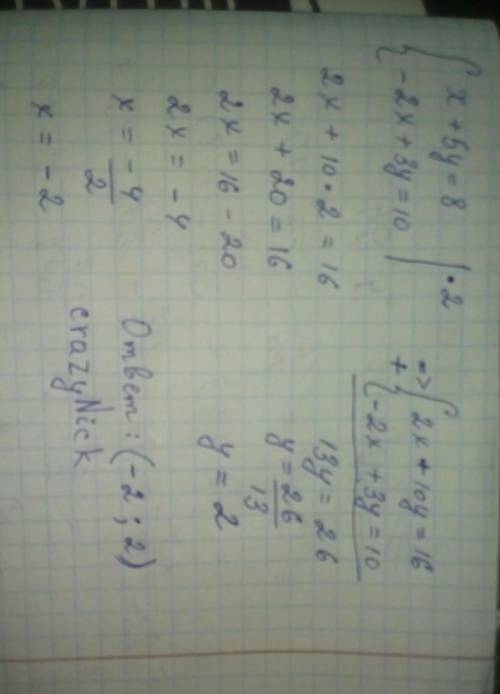 { x + 5y = 8
{ -2x + 3y = 10 | • 2
=> { 2x + 10y = 16
+ { -2x + 3y = 10
13y = 26
y = 26/13
y = 2
2x + 10 • 2 = 16
2x + 20 = 16
2x = 16 - 20
2x = - 4
x = - 4/2
x = - 2
Ответ: (-2 ; 2)
crazyNick